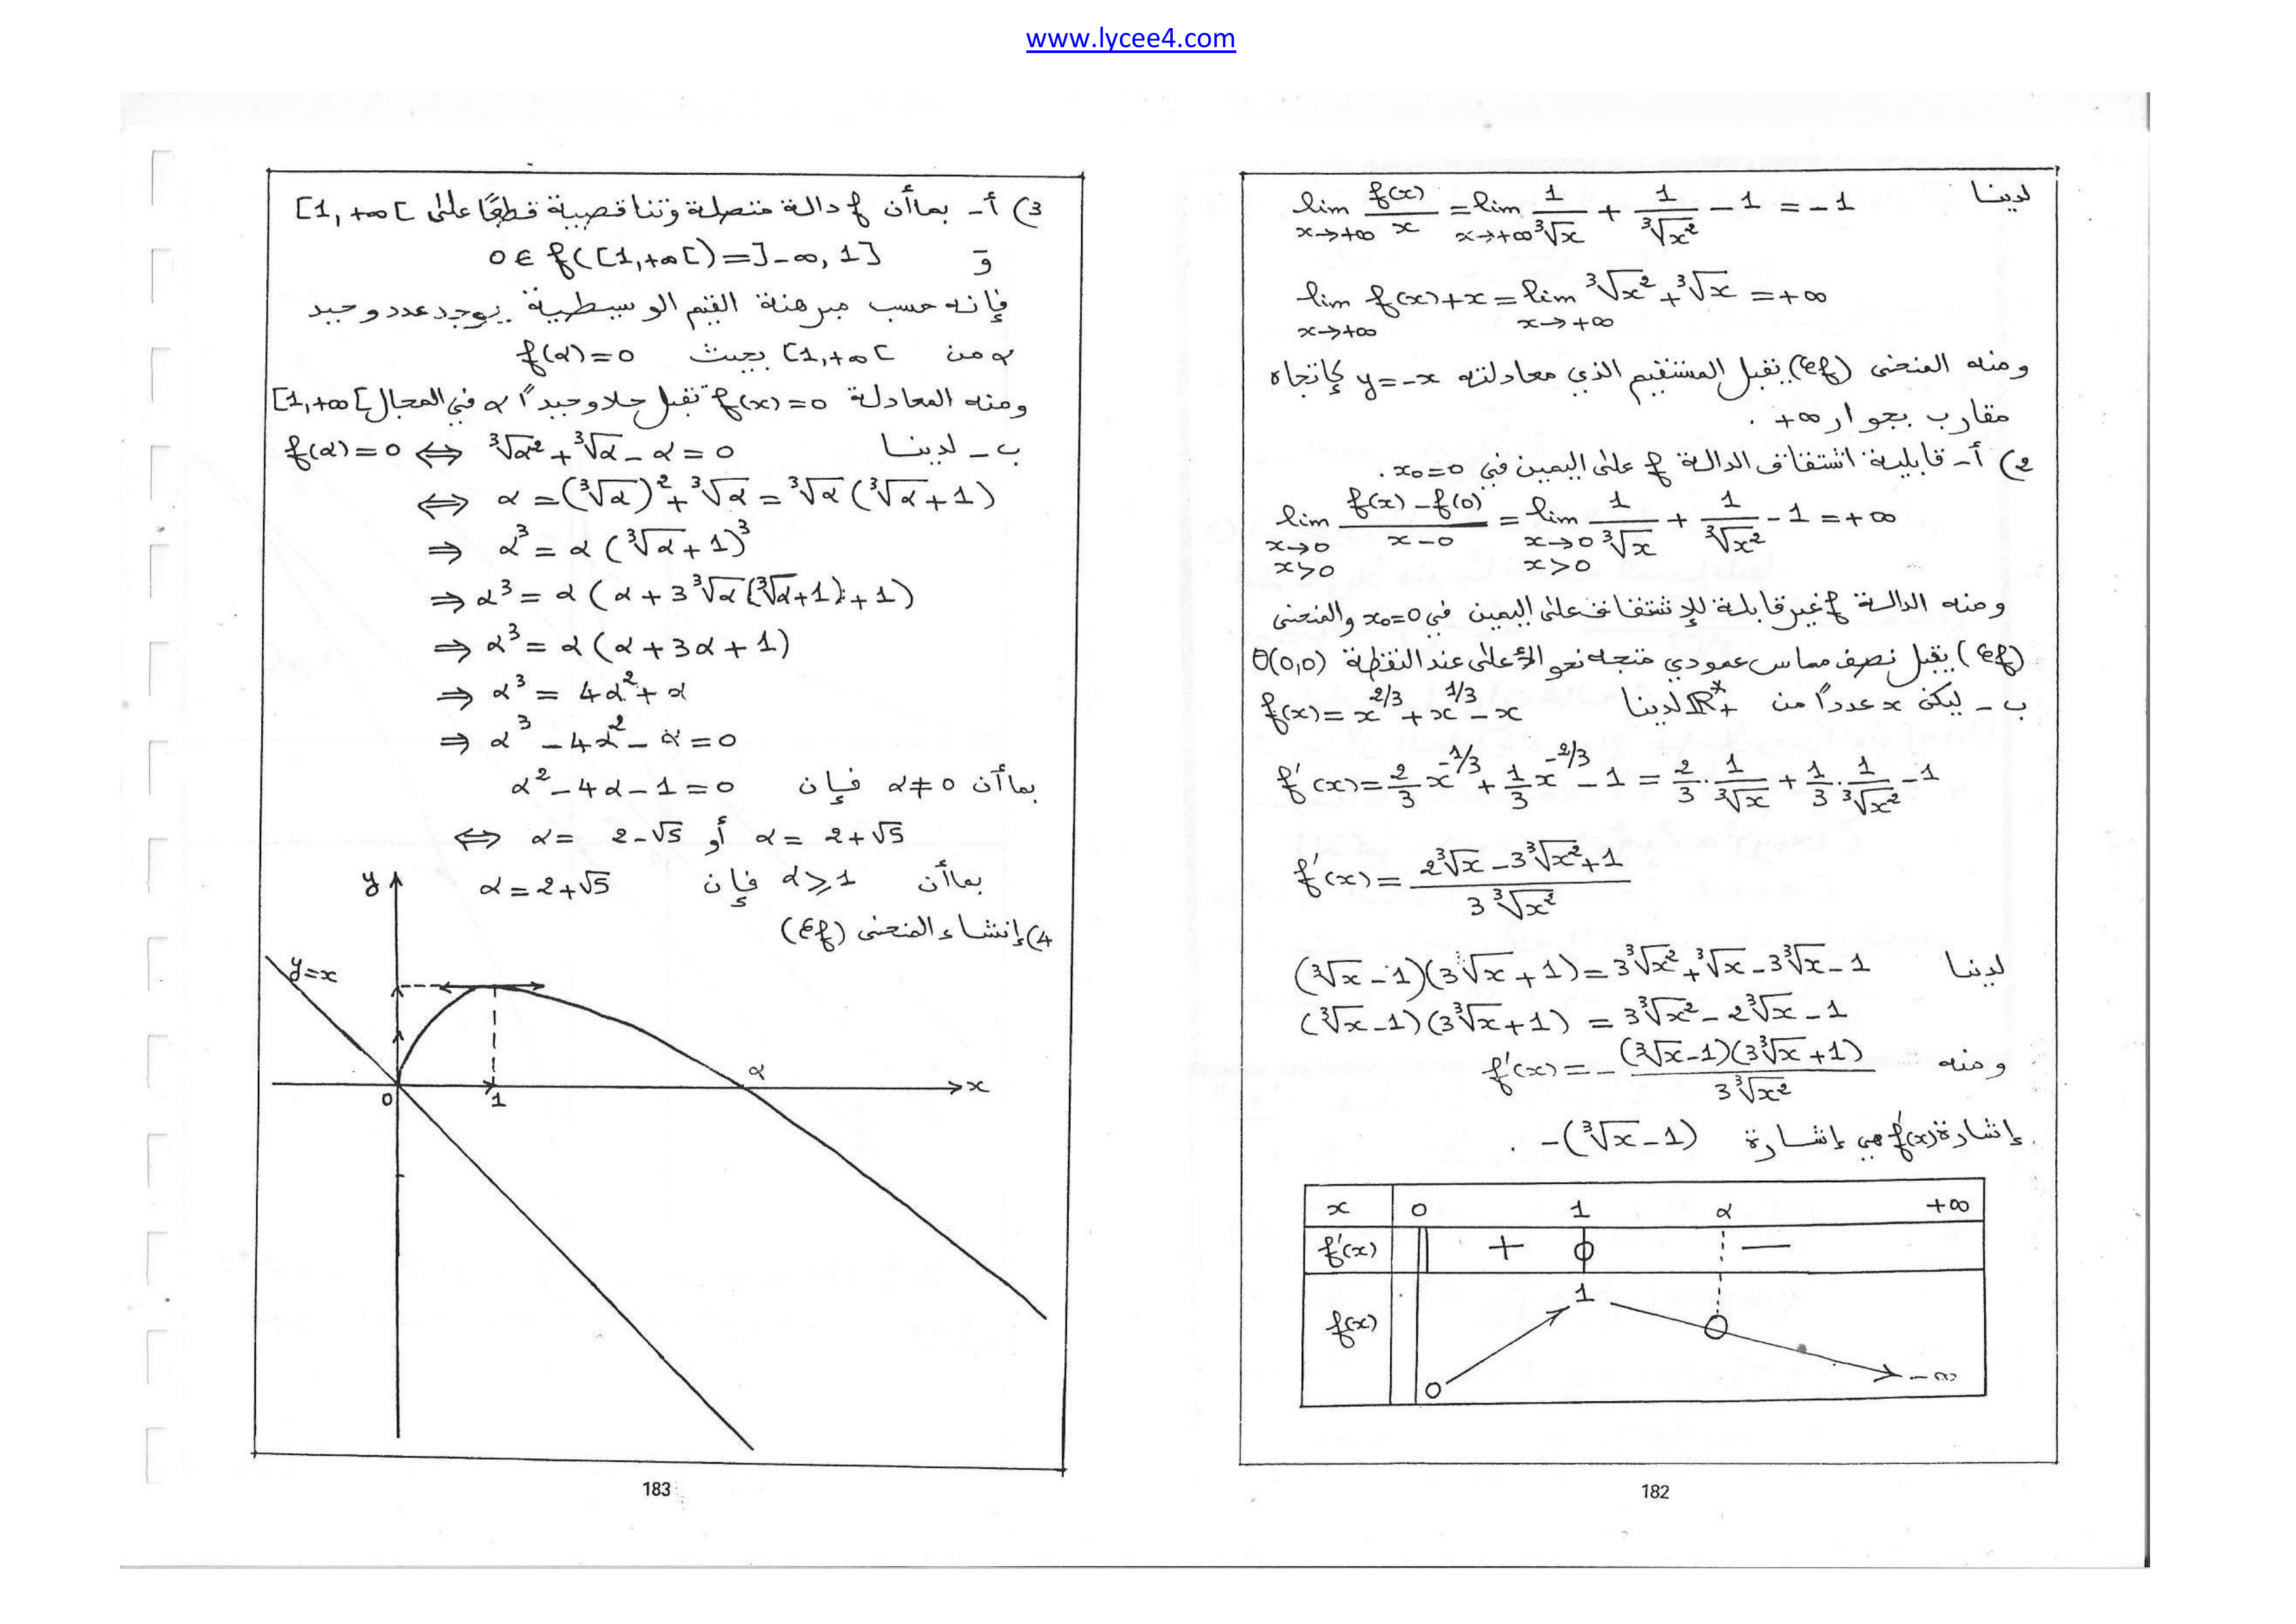 www.lycee4.com
لدينا lim_{x→+∞} f(x)/x = lim_{x→+∞} 1/∛x + 1/∛x² - 1 = -1
lim_{x→+∞} f(x)+x = lim_{x→+∞} ∛x² + ∛x = +∞
ومنه المنحنى (Cf) يقبل المستقيم الذي معادلته y=-x كاتجاه
مقارب بجوار +∞ .
2) أ- قابلية اشتقاق الدالة f على اليمين في x₀=0 .
lim_{x→0, x>0} (f(x)-f(0))/(x-0) = lim_{x→0, x>0} 1/∛x + 1/∛x² - 1 = +∞
ومنه الدالة f غير قابلة للإشتقاق على اليمين في x₀=0 والمنحنى
(Cf) يقبل نصف مماس عمودي متجه نحو الأعلى عند النقطة O(0,0)
ب - ليكن x عدداً من ℝ₊* لدينا f(x) = x^{2/3} + x^{1/3} - x
f'(x) = 2/3 x^{-1/3} + 1/3 x^{-2/3} - 1 = 2/3 . 1/∛x + 1/3 . 1/∛x² - 1
f'(x) = (2∛x - 3∛x² + 1)/(3∛x²)
لدينا (∛x - 1)(3∛x + 1) = 3∛x² + ∛x - 3∛x - 1
(∛x - 1)(3∛x + 1) = 3∛x² - 2∛x - 1
ومنه f'(x) = - (∛x - 1)(3∛x + 1)/(3∛x²)
إشارة f'(x) هي إشارة -(∛x - 1) .
x 0 1 α +∞
f'(x) + 0 −
f(x) 0 1 0 -∞
182
3) أ- بما أن f دالة متصلة وتناقصية قطعًا على [1,+∞[
و 0 ∈ f([1,+∞[) = ]-∞, 1]
فإنه حسب مبرهنة القيم الوسيطية يوجد عدد وحيد
α من [1,+∞[ بحيث f(α)=0
ومنه المعادلة f(x)=0 تقبل حلا وحيداً α في المجال [1,+∞[
ب - لدينا f(α)=0 ⟺ ∛α² + ∛α - α = 0
⟺ α = (∛α)² + ∛α = ∛α(∛α + 1)
⟹ α³ = α(∛α + 1)³
⟹ α³ = α(α + 3∛α(∛α+1) + 1)
⟹ α³ = α(α + 3α + 1)
⟹ α³ = 4α² + α
⟹ α³ - 4α² - α = 0
بما أن α≠0 فإن α² - 4α - 1 = 0
⟺ α = 2-√5 أو α = 2+√5
بما أن α⩾1 فإن α = 2+√5
4) إنشاء المنحنى (Cf)
y
y=x
α
0
1
x
183